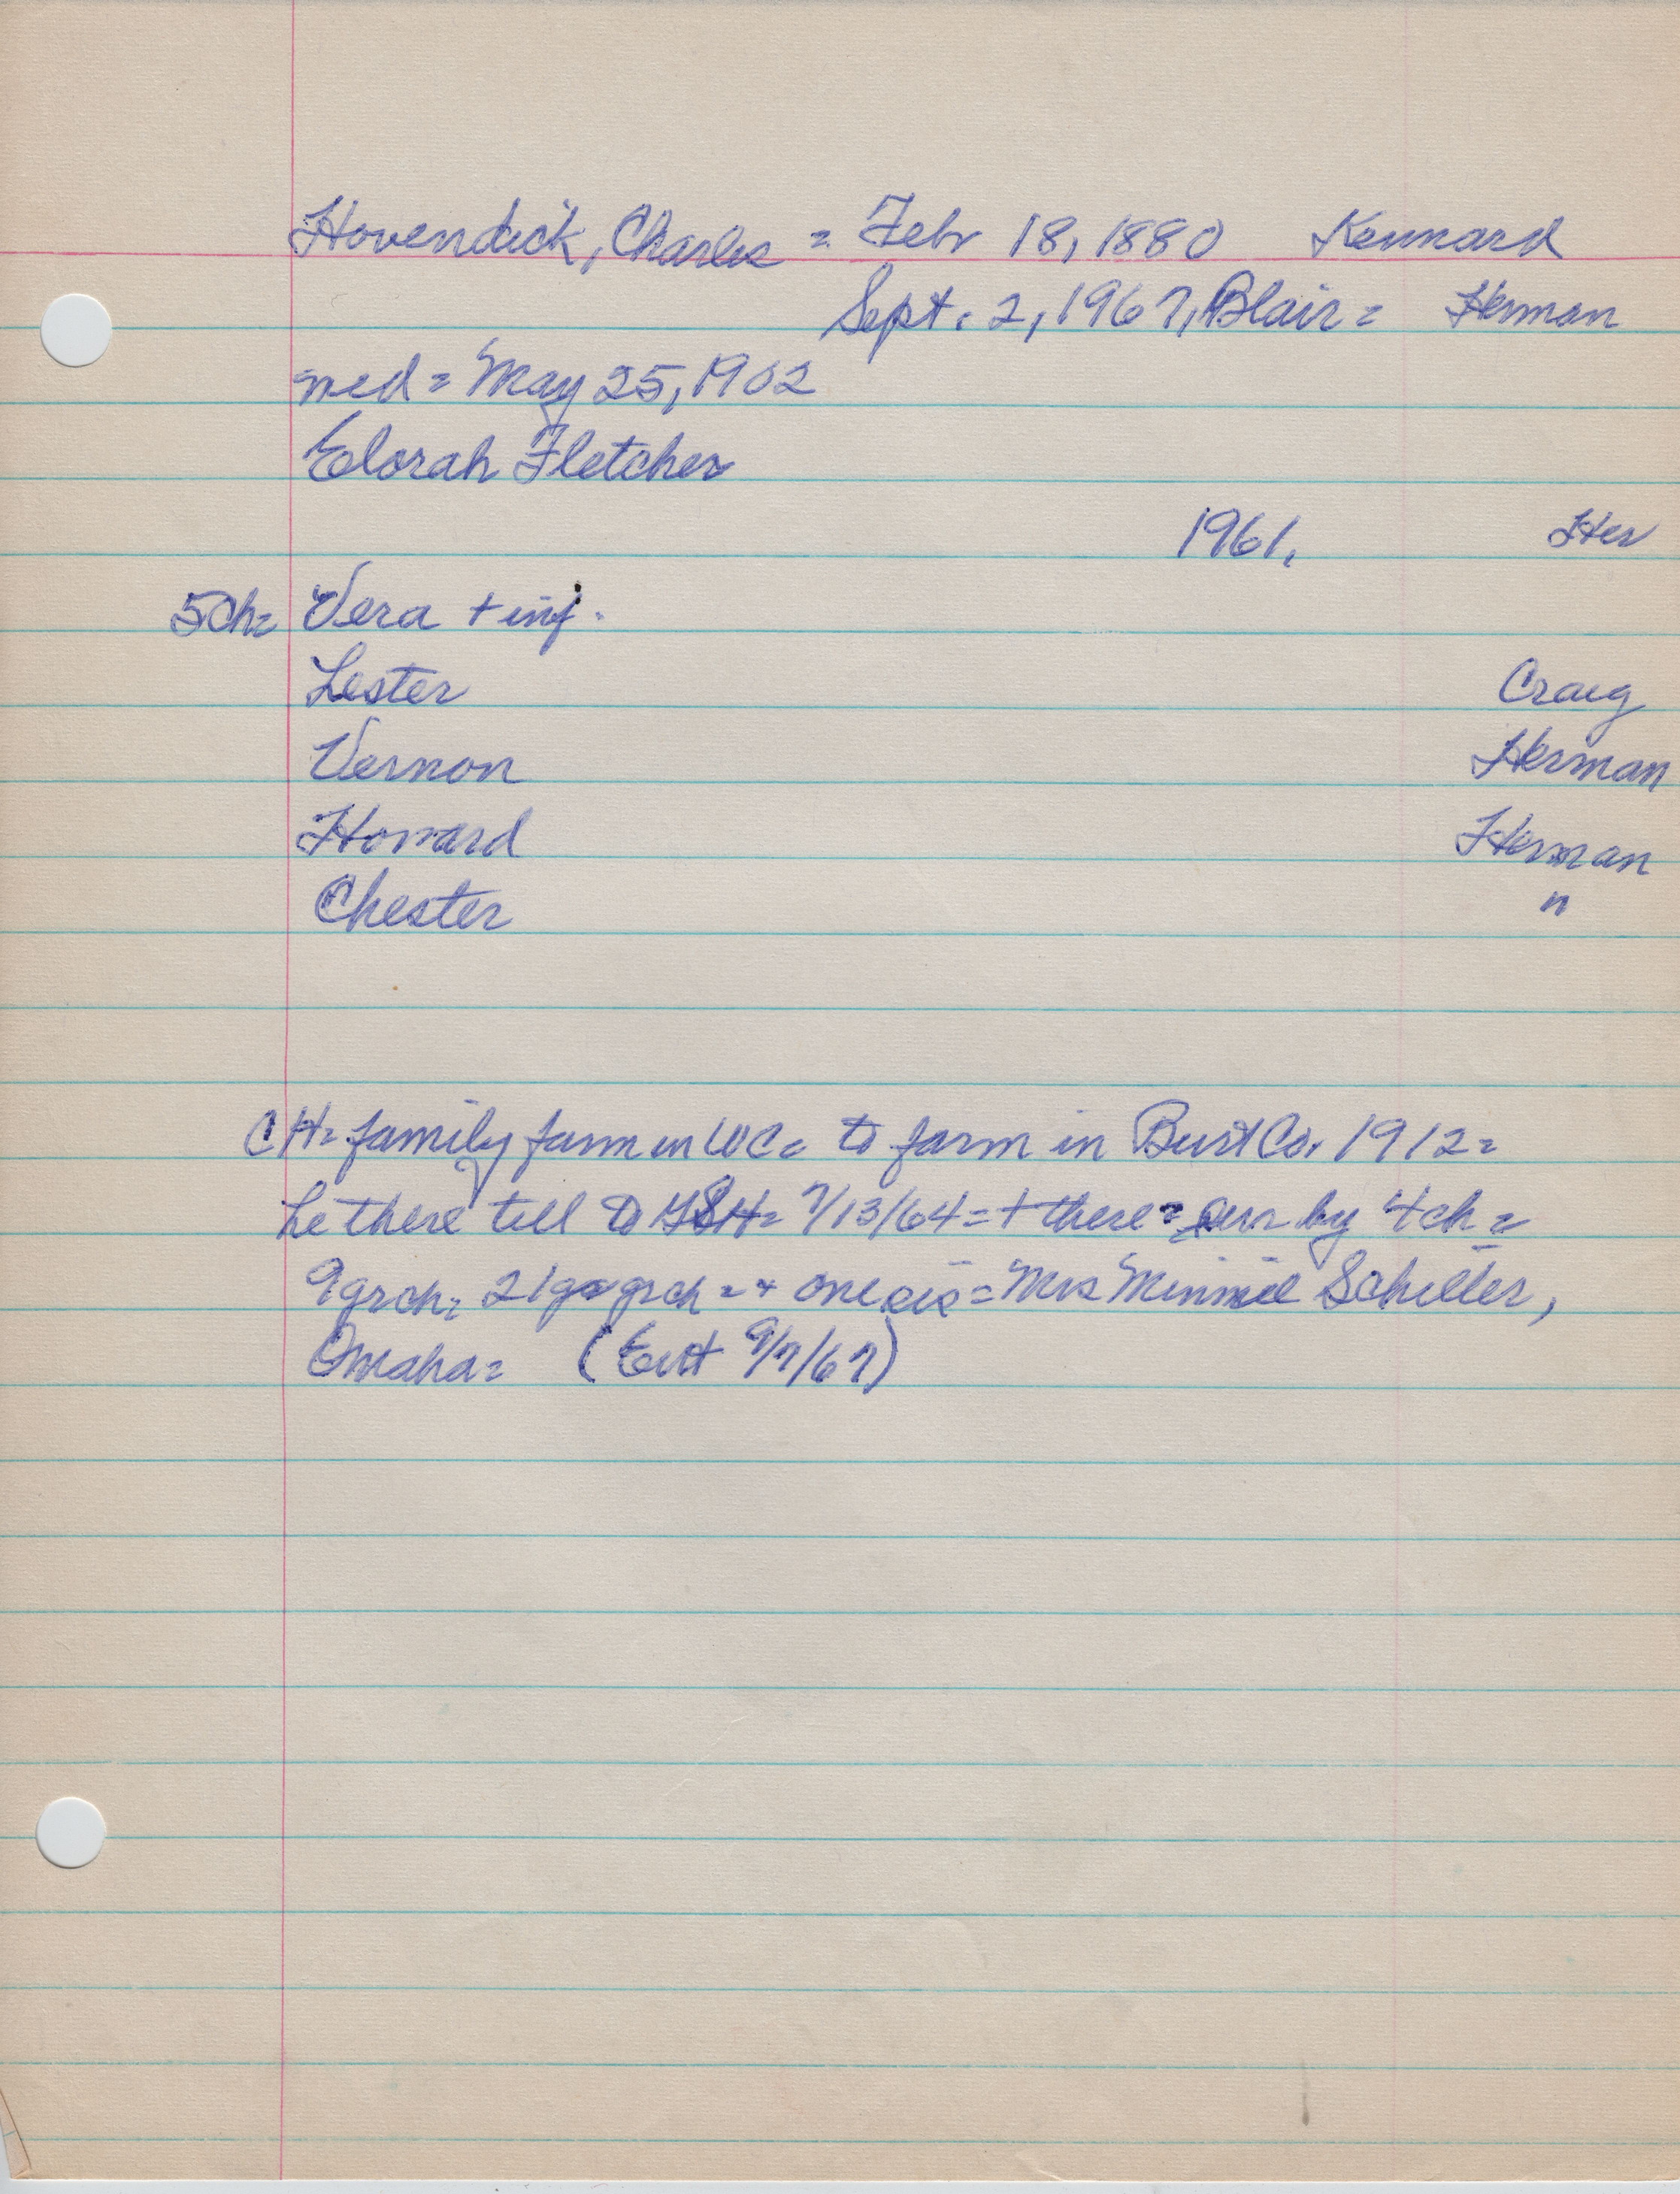 Hovendick, Charles = Febr 18, 1880 Kennard
Sept. 2, 1967, Blair = Herman
med = May 25, 1902
Elorah Fletcher
1961. Her
5Ch= Vera + inf.
Lester Craig
Vernon Herman
Howard Herman
Chester "
CH= family farm in WC= to farm in Burt Co. 1912=
he there till to GSH= 7/13/64 = + there = sur by 4 ch =
9 grch= 21 gr grch = + one sis = Mrs Minnie Schiller,
Omaha= (Ent 9/7/67)